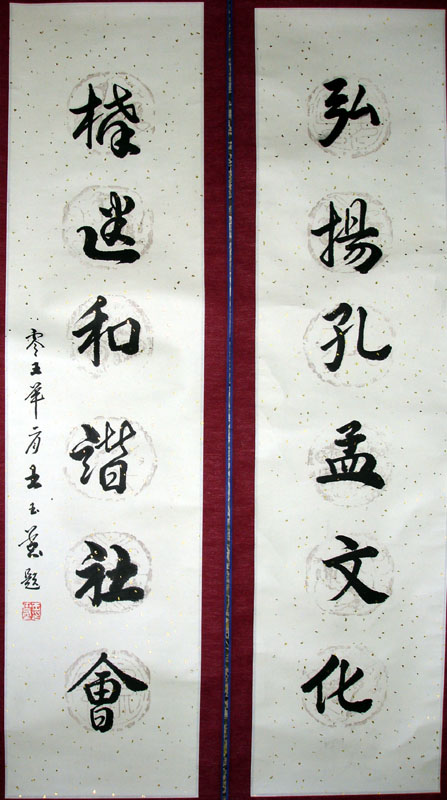 弘揚孔孟文化
構建和諧社會
零五年 王玉 題